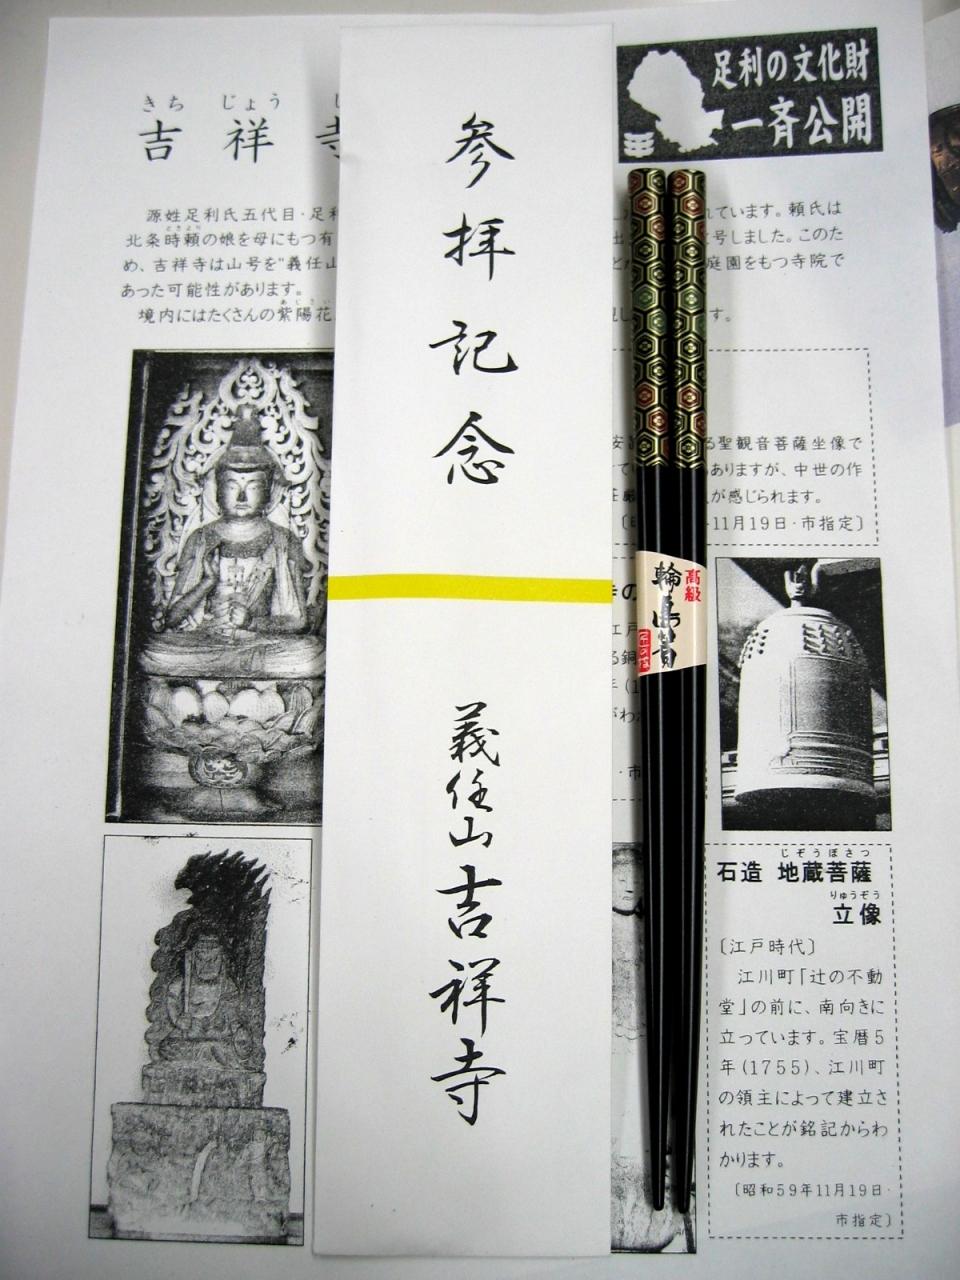 足利の文化財
一斉公開
きち じょう
吉 祥 寺
源姓足利氏五代目・足利
北条時頼の娘を母にもつ有
ときより
め、吉祥寺は山号を"義任山
あった可能性があります。
あじさい
境内にはたくさんの紫陽花
れています。頼氏は
号しました。このた
庭園をもつ寺院で
す。
参拝記念
義任山吉祥寺
る聖観音菩薩坐像で
ありますが、中世の作
が感じられます。
11月19日・市指定〕
高級
輪島箸
じぞうぼさつ
石造 地蔵菩薩
りゅうぞう
立像
〔江戸時代〕
江川町「辻の不動
堂」の前に、南向きに
立っています。宝暦5
年(1755)、江川町
の領主によって建立さ
れたことが銘記からわ
かります。
〔昭和59年11月19日・
市指定〕